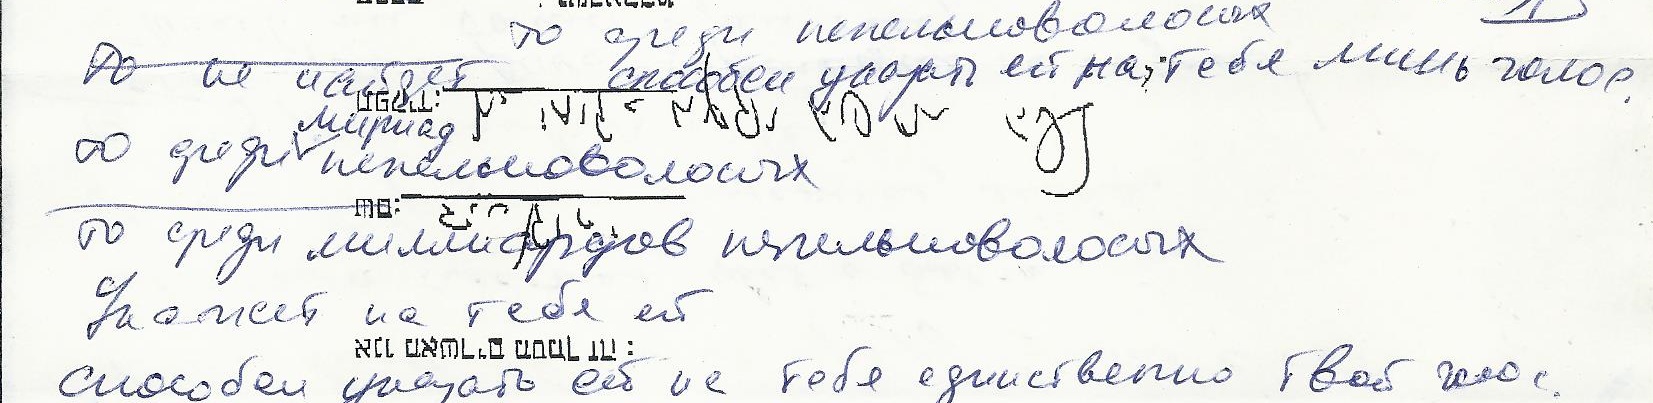 то среди пепельноволосых
то не найдет способен указать ей на тебя лишь голос.
мириад
то среди пепельноволосых
שם:
то среди миллиардов пепельноволосых
Укажет на тебя ей
אנו מאשרים מסמך זה:
способен указать ей на тебя единственно твой голос.